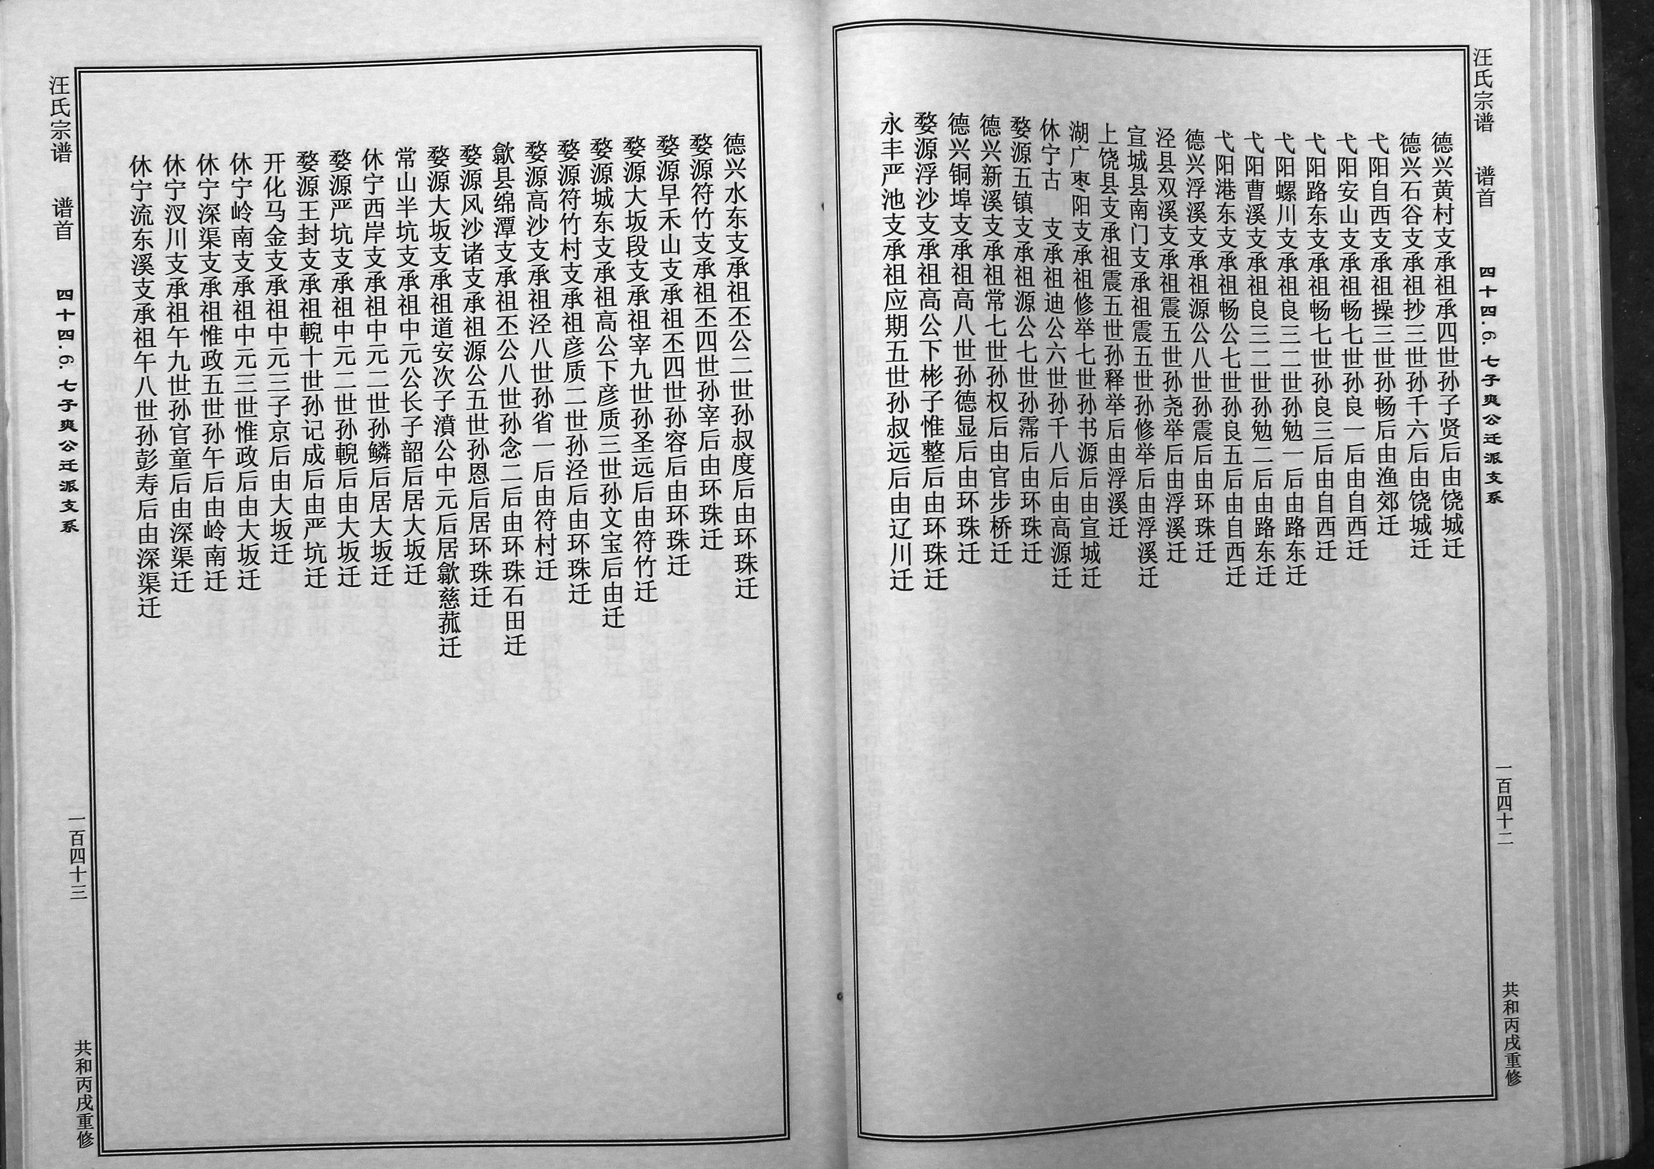 汪氏宗谱 谱首 四十四.6.七子爽公迁派支系 一百四十二 共和丙戌重修
德兴黄村支承祖承四世孙子贤后由饶城迁
德兴石谷支承祖抄三世孙千六后由饶城迁
弋阳自西支承祖操三世孙畅后由渔郊迁
弋阳安山支承祖畅七世孙良一后由自西迁
弋阳路东支承祖畅七世孙良三后由自西迁
弋阳螺川支承祖良三二世孙勉一后由路东迁
弋阳曹溪支承祖良三二世孙勉二后由路东迁
弋阳港东支承祖畅公七世孙良五后由自西迁
德兴浮溪支承祖源公八世孙震后由环珠迁
泾县双溪支承祖震五世孙尧举后由浮溪迁
宣城县南门支承祖震五世孙修举后由浮溪迁
上饶县支承祖震五世孙释举后由浮溪迁
湖广枣阳支承祖修举七世孙书源后由宣城迁
休宁古 支承祖迪公六世孙千八后由高源迁
婺源五镇支承祖源公七世孙霈后由环珠迁
德兴新溪支承祖常七世孙权后由官步桥迁
德兴铜埠支承祖高八世孙德显后由环珠迁
婺源浮沙支承祖高公下彬子惟整后由环珠迁
永丰严池支承祖应期五世孙叔远后由辽川迁
德兴水东支承祖丕公二世孙叔度后由环珠迁
婺源符竹支承祖丕四世孙宰后由环珠迁
婺源早禾山支承祖丕四世孙容后由环珠迁
婺源大坂段支承祖宰九世孙圣远后由符竹迁
婺源城东支承祖高公下彦质三世孙文宝后由迁
婺源符竹村支承祖彦质二世孙泾后由环珠迁
婺源高沙支承祖泾八世孙省一后由符村迁
歙县绵潭支承祖丕公八世孙念二后由环珠石田迁
婺源风沙诸支承祖源公五世孙恩后居环珠迁
婺源大坂支承祖道安次子濆公中元后居歙慈菰迁
常山半坑支承祖中元公长子韶后居大坂迁
休宁西岸支承祖中元二世孙鳞后居大坂迁
婺源严坑支承祖中元二世孙輗后由大坂迁
婺源王封支承祖輗十世孙记成后由严坑迁
开化马金支承祖中元三子京后由大坂迁
休宁岭南支承祖中元三世惟政后由大坂迁
休宁深渠支承祖惟政五世孙午后由岭南迁
休宁汊川支承祖午九世孙官童后由深渠迁
休宁流东溪支承祖午八世孙彭寿后由深渠迁
汪氏宗谱 谱首 四十四.6.七子爽公迁派支系 一百四十三 共和丙戌重修